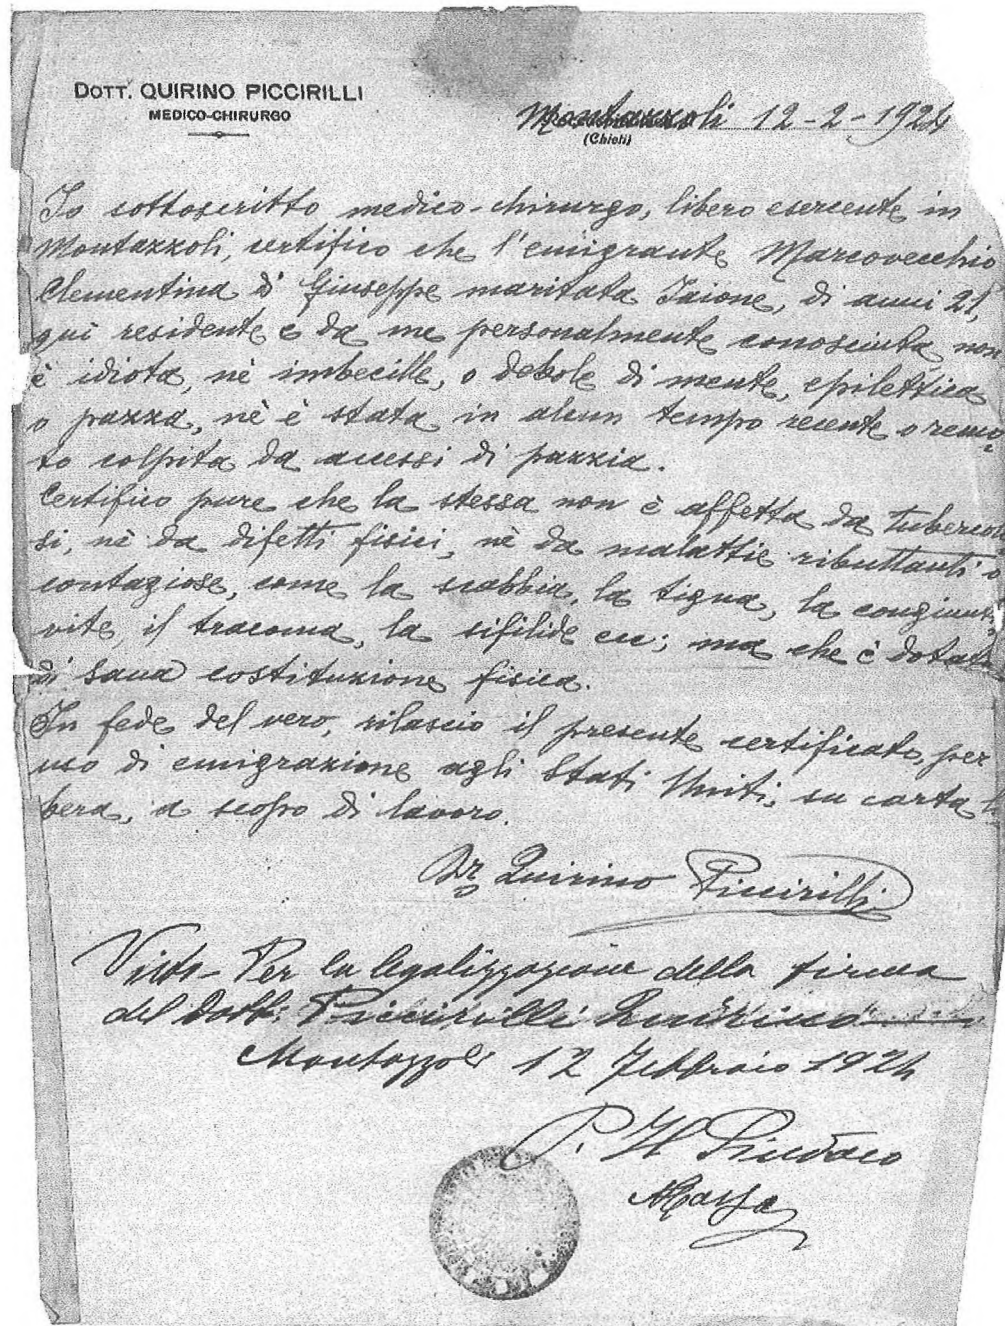 DOTT. QUIRINO PICCIRILLI
MEDICO-CHIRURGO
Montazzoli 12-2-1924
(Chieti)
Io sottoscritto medico-chirurgo, libero esercente in
Montazzoli, certifico che l'emigrante Marcovecchio
Clementina di Giuseppe maritata Iaione, di anni 21,
quì residente e da me personalmente conosciuta, non
è idiota, nè imbecille, o debole di mente, epilettica
o pazza, nè è stata in alcun tempo recente o remo-
to colpita da accessi di pazzia.
Certifico pure che la stessa non è affetta da tuberco
si, nè da difetti fisici, nè da malattie ributtanti o
contagiose, come la scabbia, la tigna, la congiunti
vite, il tracoma, la sifilide ecc; ma che è dotata
di sana costituzione fisica.
In fede del vero, rilascio il presente certificato, per
uso di emigrazione agli Stati Uniti, su carta li
bera, a scopo di lavoro.
Dr Quirino Piccirilli
Visto - Per la legalizzazione della firma
del Dott: Piccirilli Quirino
Montazzoli 12 Febbraio 1924
P. Il Sindaco